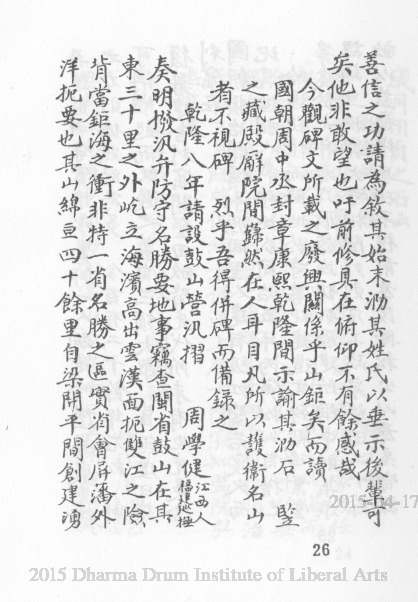 善信之功請為敘其始末泐其姓氏以垂示後輩可
矣他非敢望也吁前修具在俯仰不有餘感哉
今觀碑文所載之廢興關係乎山鉅矣而讀
國朝周中丞封章康熙乾隆間示諭其泐石　豎
之藏殿廨院間巋然在人耳目凡所以護衛名山
者不視碑　烈乎吾得併碑而備錄之
乾隆八年請設鼓山營汛摺　周學健江西人福建巡撫
奏明撥汛弁防守名勝要地事竊查閩省鼓山在其
東三十里之外屹立海濱高出雲漢面扼雙江之險
背當鉅海之衝非特一省名勝之區實省會屏藩外
洋扼要也其山綿亘四十餘里自梁開平間創建湧
26
2015 Dharma Drum Institute of Liberal Arts